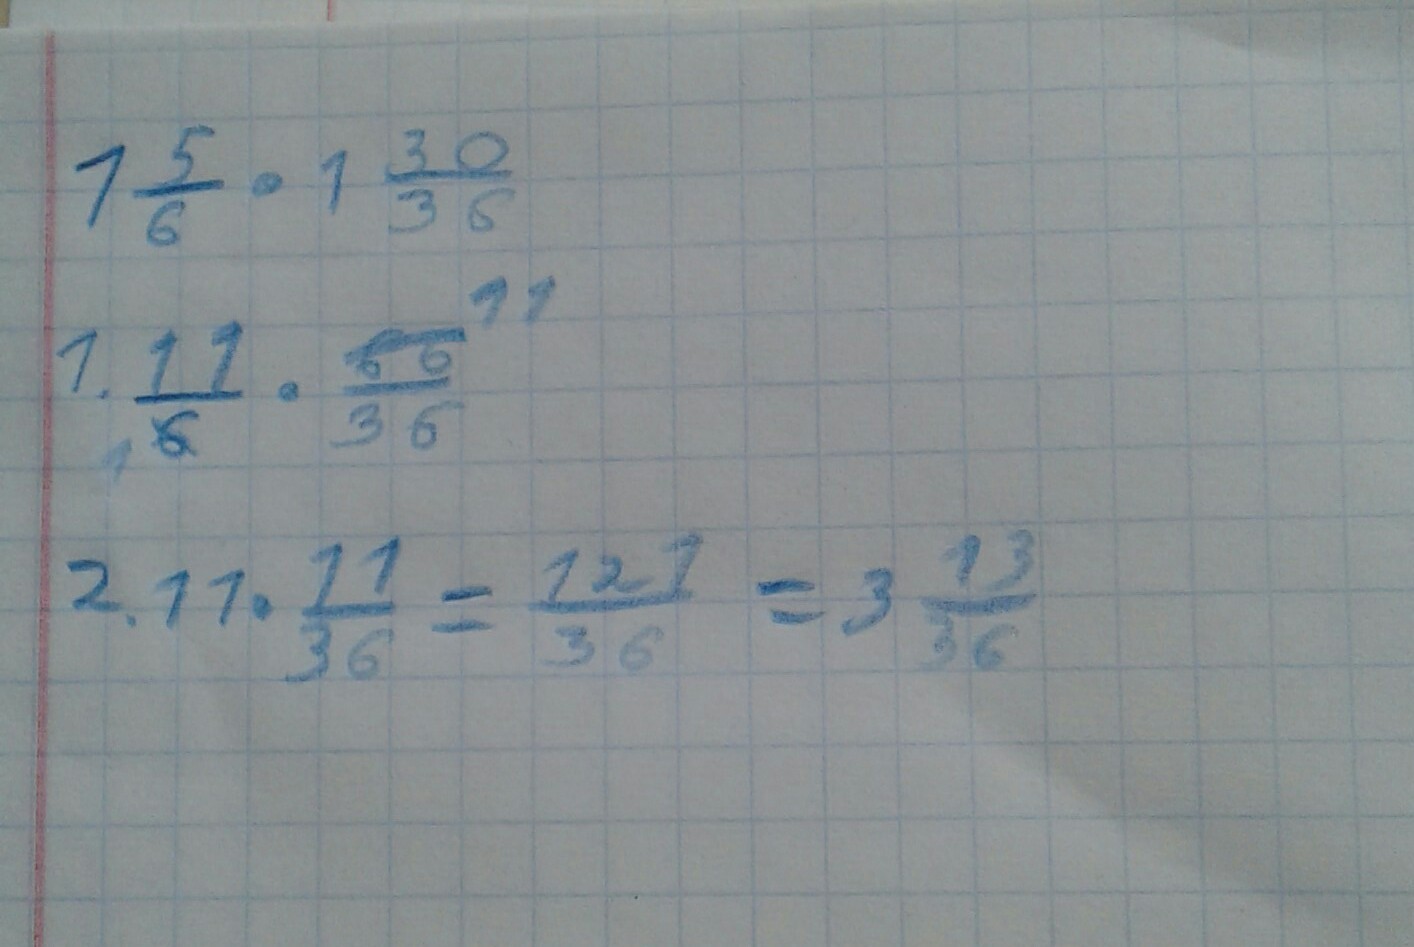 1 5/6 • 1 30/36
1. 11/6 • 66/36 11
1
2. 11 • 11/36 = 121/36 = 3 13/36